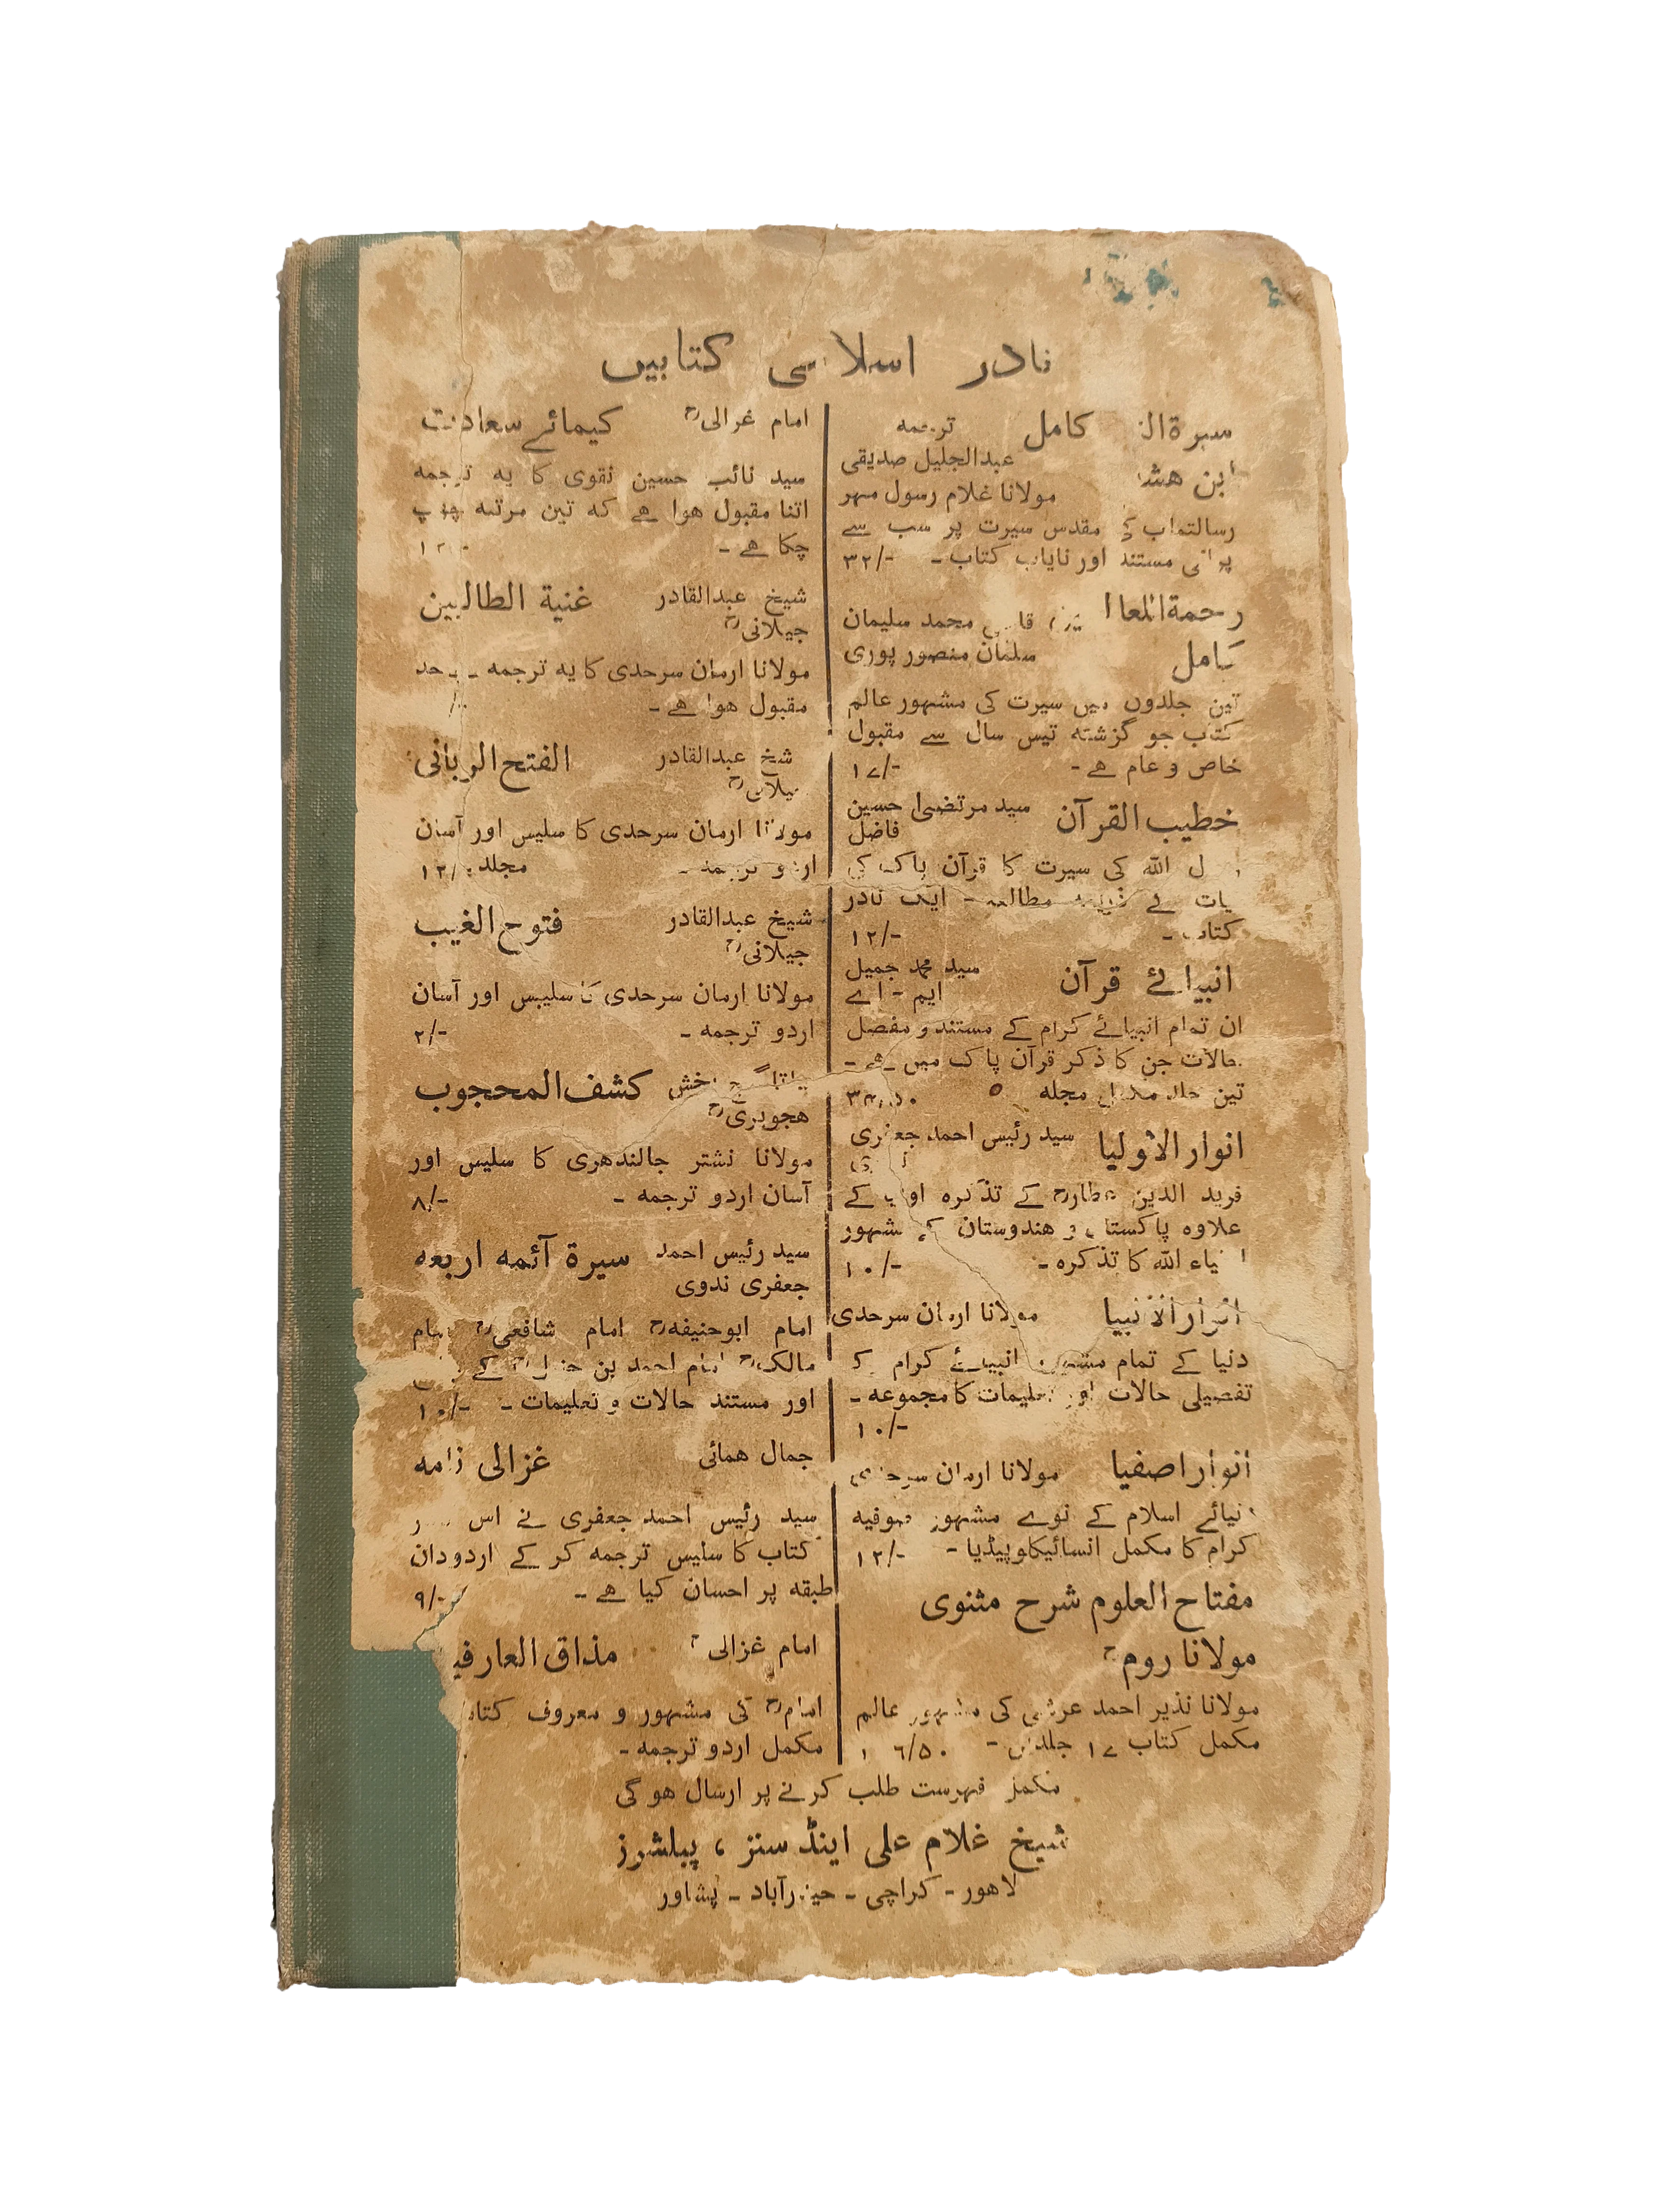 نادر اسلامی کتابیں
سیرۃ کامل ترجمہ
عبدالجلیل صدیقی
ابن مولانا غلام رسول مہر
رسالتماب کی مقدس سیرت پر سب سے
پرانی مستند اور نایاب کتاب - ۳۲/-
قاضی محمد سلیمان
کامل سلمان منصور پوری
تین جلدوں میں سیرت کی مشہور عالم
کتاب جو گزشتہ تیس سال سے مقبول
خاص و عام ہے - ۱۷/-
خطیب القرآن سید مرتضیٰ حسین
فاضل
اللہ کی سیرت کا قرآن پاک کی
کے ذریعہ مطالعہ - ایک نادر
کتاب - ۱۲/-
انبیائے قرآن سید محمد جمیل
ایم - اے
ان تمام انبیائے کرام کے مستند و مفصل
حالات جن کا ذکر قرآن پاک میں ہے -
تین جلد مکمل مجلد
انوار الاولیا سید رئیس احمد جعفری
فرید الدین عطارؒ کے تذکرہ کے
علاوہ پاکستان و ہندوستان کے مشہور
اللہ کا تذکرہ - ۱۰/-
انوار الانبیا مولانا ارمان سرحدی
دنیا کے تمام مشہور انبیائے کرام کے
تفصیلی حالات اور تعلیمات کا مجموعہ -
۱۰/-
انوار اصفیا مولانا ارمان سرحدی
دنیائے اسلام کے نوے مشہور صوفیہ
کرام کا مکمل انسائیکلوپیڈیا - ۱۲/-
مفتاح العلوم شرح مثنوی
مولانا رومؒ
مولانا نذیر احمد عرشی کی مشہور عالم
مکمل کتاب ۱۷ جلدیں -
امام غزالیؒ کیمائے سعادت
سید نائب حسین نقوی کا یہ ترجمہ
اتنا مقبول ہوا ہے کہ تین مرتبہ چھپ
چکا ہے -
شیخ عبدالقادر غنیة الطالبین
جیلانیؒ
مولانا ارمان سرحدی کا یہ ترجمہ بے حد
مقبول ہوا ہے -
شیخ عبدالقادر الفتح الربانی
جیلانیؒ
مولانا ارمان سرحدی کا سلیس اور آسان
اردو ترجمہ - مجلد ۱۲/
شیخ عبدالقادر فتوح الغیب
جیلانیؒ
مولانا ارمان سرحدی کا سلیس اور آسان
اردو ترجمہ - ۲/-
گنج بخش کشف المحجوب
ہجویریؒ
مولانا نشتر جالندھری کا سلیس اور
آسان اردو ترجمہ - ۸/-
سید رئیس احمد سیرة آئمہ اربعہ
جعفری ندوی
امام ابوحنیفہؒ امام شافعیؒ امام
مالکؒ امام احمد بن حنبلؒ کے
اور مستند حالات و تعلیمات - ۱۰/-
جمال ہمائی غزالی نامہ
سید رئیس احمد جعفری نے اس
کتاب کا سلیس ترجمہ کر کے اردودان
طبقہ پر احسان کیا ہے - ۹/-
امام غزالیؒ مذاق العارفین
امامؒ کی مشہور و معروف کتاب
مکمل اردو ترجمہ -
مکمل فہرست طلب کرنے پر ارسال ہو گی
شیخ غلام علی اینڈ سنز ، پبلشرز
لاہور - کراچی - حیدرآباد - پشاور